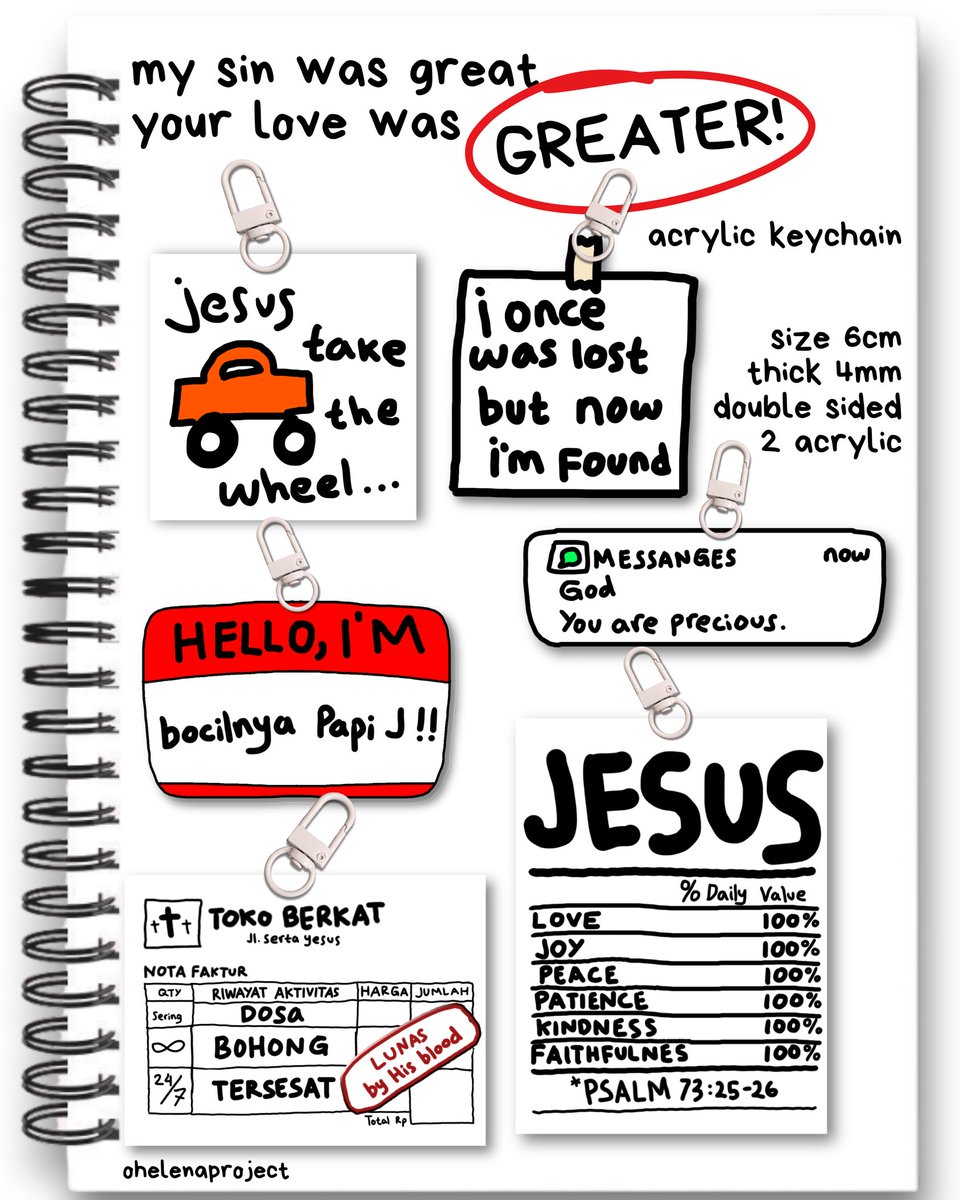 my sin was great
your love was GREATER!
acrylic keychain
size 6cm
thick 4mm
double sided
2 acrylic
jesus
take
the
wheel...
i once
was lost
but now
i'm found
MESSANGES now
God
You are precious.
HELLO, I'M
bocilnya Papi J !!
JESUS
% Daily Value
LOVE 100%
JOY 100%
PEACE 100%
PATIENCE 100%
KINDNESS 100%
FAITHFULNES 100%
*PSALM 73:25-26
TOKO BERKAT
Jl. Serta Yesus
NOTA FAKTUR
QTY RIWAYAT AKTIVITAS HARGA JUMLAH
Sering DOSA
∞ BOHONG
24/7 TERSESAT
LUNAS
by His blood
Total Rp
ohelenaproject